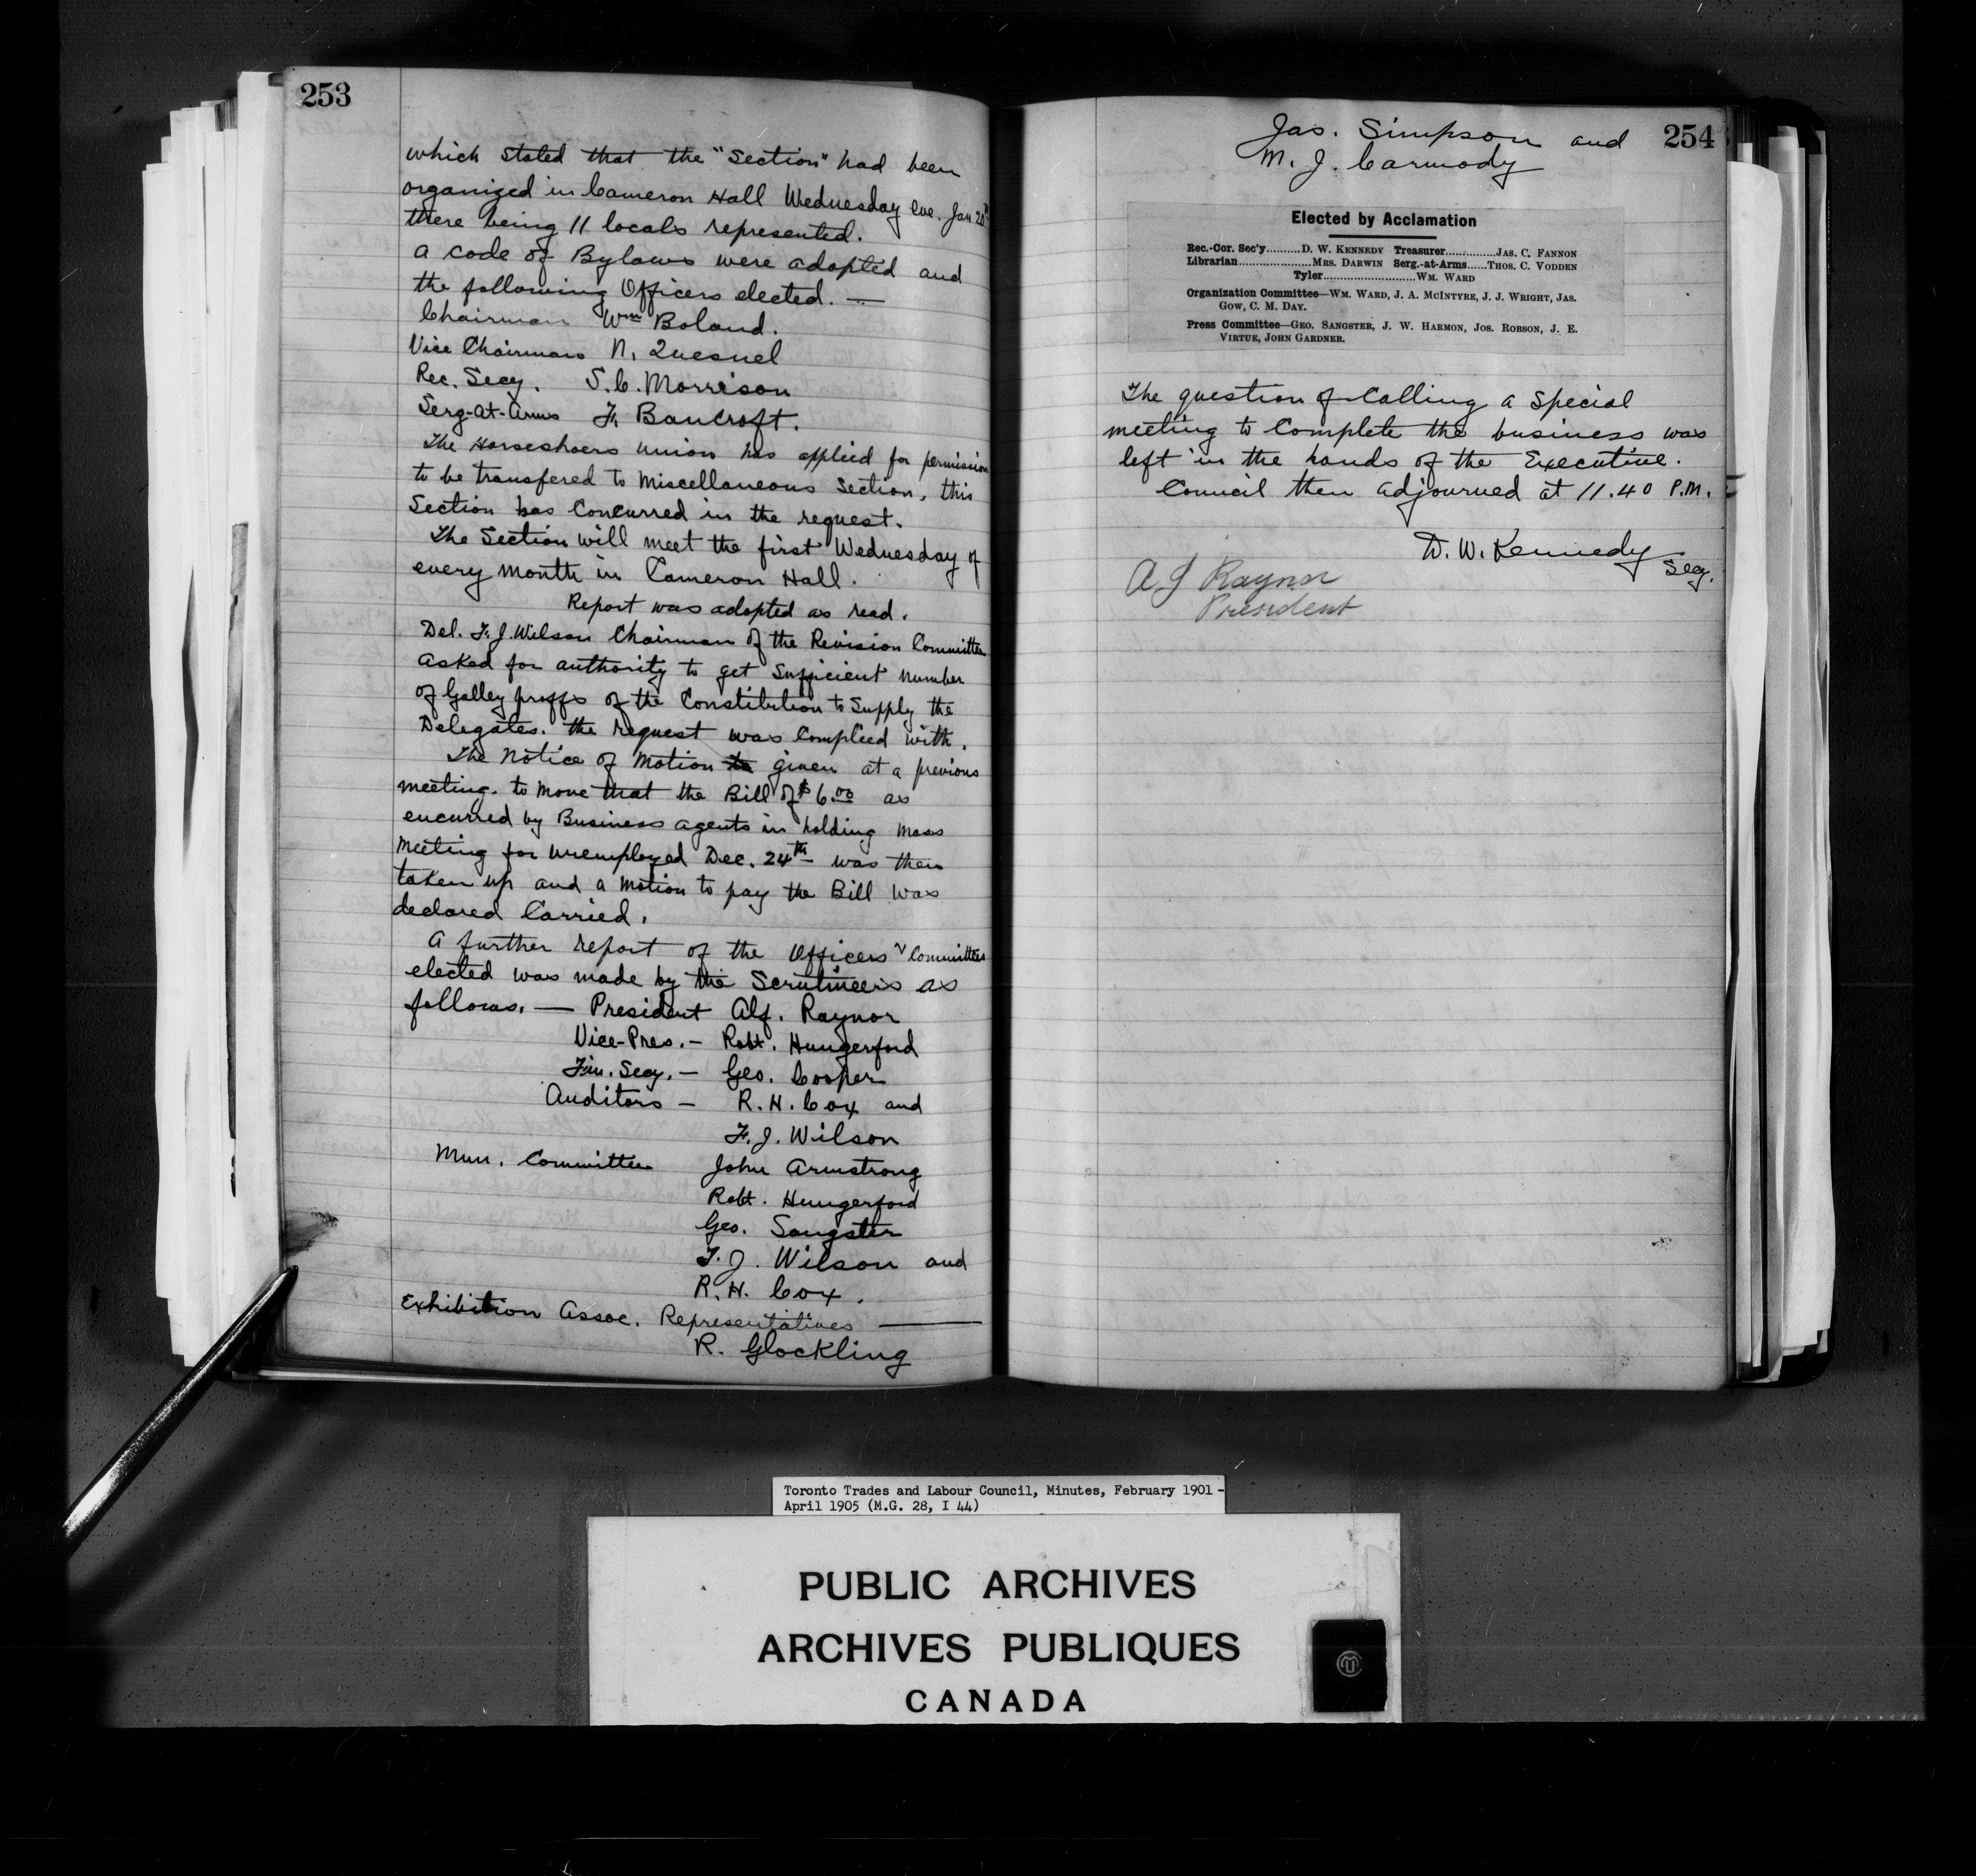 253
which stated that the "Section" had been
organized in Cameron Hall Wednesday eve. Jan 20th
there being 11 locals represented.
A code of Bylaws were adopted and
the following Officers elected. —
Chairman Wm Boland.
Vice Chairman N. Quesnel
Rec. Secy. S. C. Morrison
Serg-at-Arms F. Bancroft.
The Horseshoers union has applied for permission
to be transfered to Miscellaneous Section, this
Section has Concurred in the request.
The Section will meet the first Wednesday of
every month in Cameron Hall.
Report was adopted as read.
Del. F. J. Wilson Chairman of the Revision Committee
asked for authority to get Sufficient number
of Galley proffs of the Constitution to Supply the
Delegates. the request was Complied with.
The Notice of Motion to given at a previous
meeting. to move that the Bill of $6.00 as
encurred by Business agents in holding mass
meeting for unemployed Dec. 24th was then
taken up and a motion to pay the Bill was
declared Carried.
A further report of the Officers & Committees
elected was made by the Scrutineers as
follows. — President Alf. Raynor
Vice-Pres. — Robt. Hungerford
Fin. Secy. — Geo. Cooper
Auditors — R. H. Cox and
F. J. Wilson
Mun. Committee John Armstrong
Robt. Hungerford
Geo. Sangster
F. J. Wilson and
R. H. Cox.
Exhibition Assoc. Representatives —
R. Glockling
254
Jas. Simpson and
M. J. Carmody
Elected by Acclamation
Rec.-Cor. Sec'y.........D. W. KENNEDY Treasurer..............JAS. C. FANNON
Librarian...................MRS. DARWIN Serg.-at-Arms.....THOS. C. VODDEN
Tyler........................WM. WARD
Organization Committee—WM. WARD, J. A. MCINTYRE, J. J. WRIGHT, JAS.
GOW, C. M. DAY.
Press Committee—GEO. SANGSTER, J. W. HARMON, JOS. ROBSON, J. E.
VIRTUE, JOHN GARDNER.
The question of Calling a Special
meeting to Complete the business was
left in the hands of the Executive.
Council then adjourned at 11.40 P.M.
D. W. Kennedy
Secy.
A J Raynor
President
Toronto Trades and Labour Council, Minutes, February 1901 -
April 1905 (M.G. 28, I 44)
PUBLIC ARCHIVES
ARCHIVES PUBLIQUES
CANADA